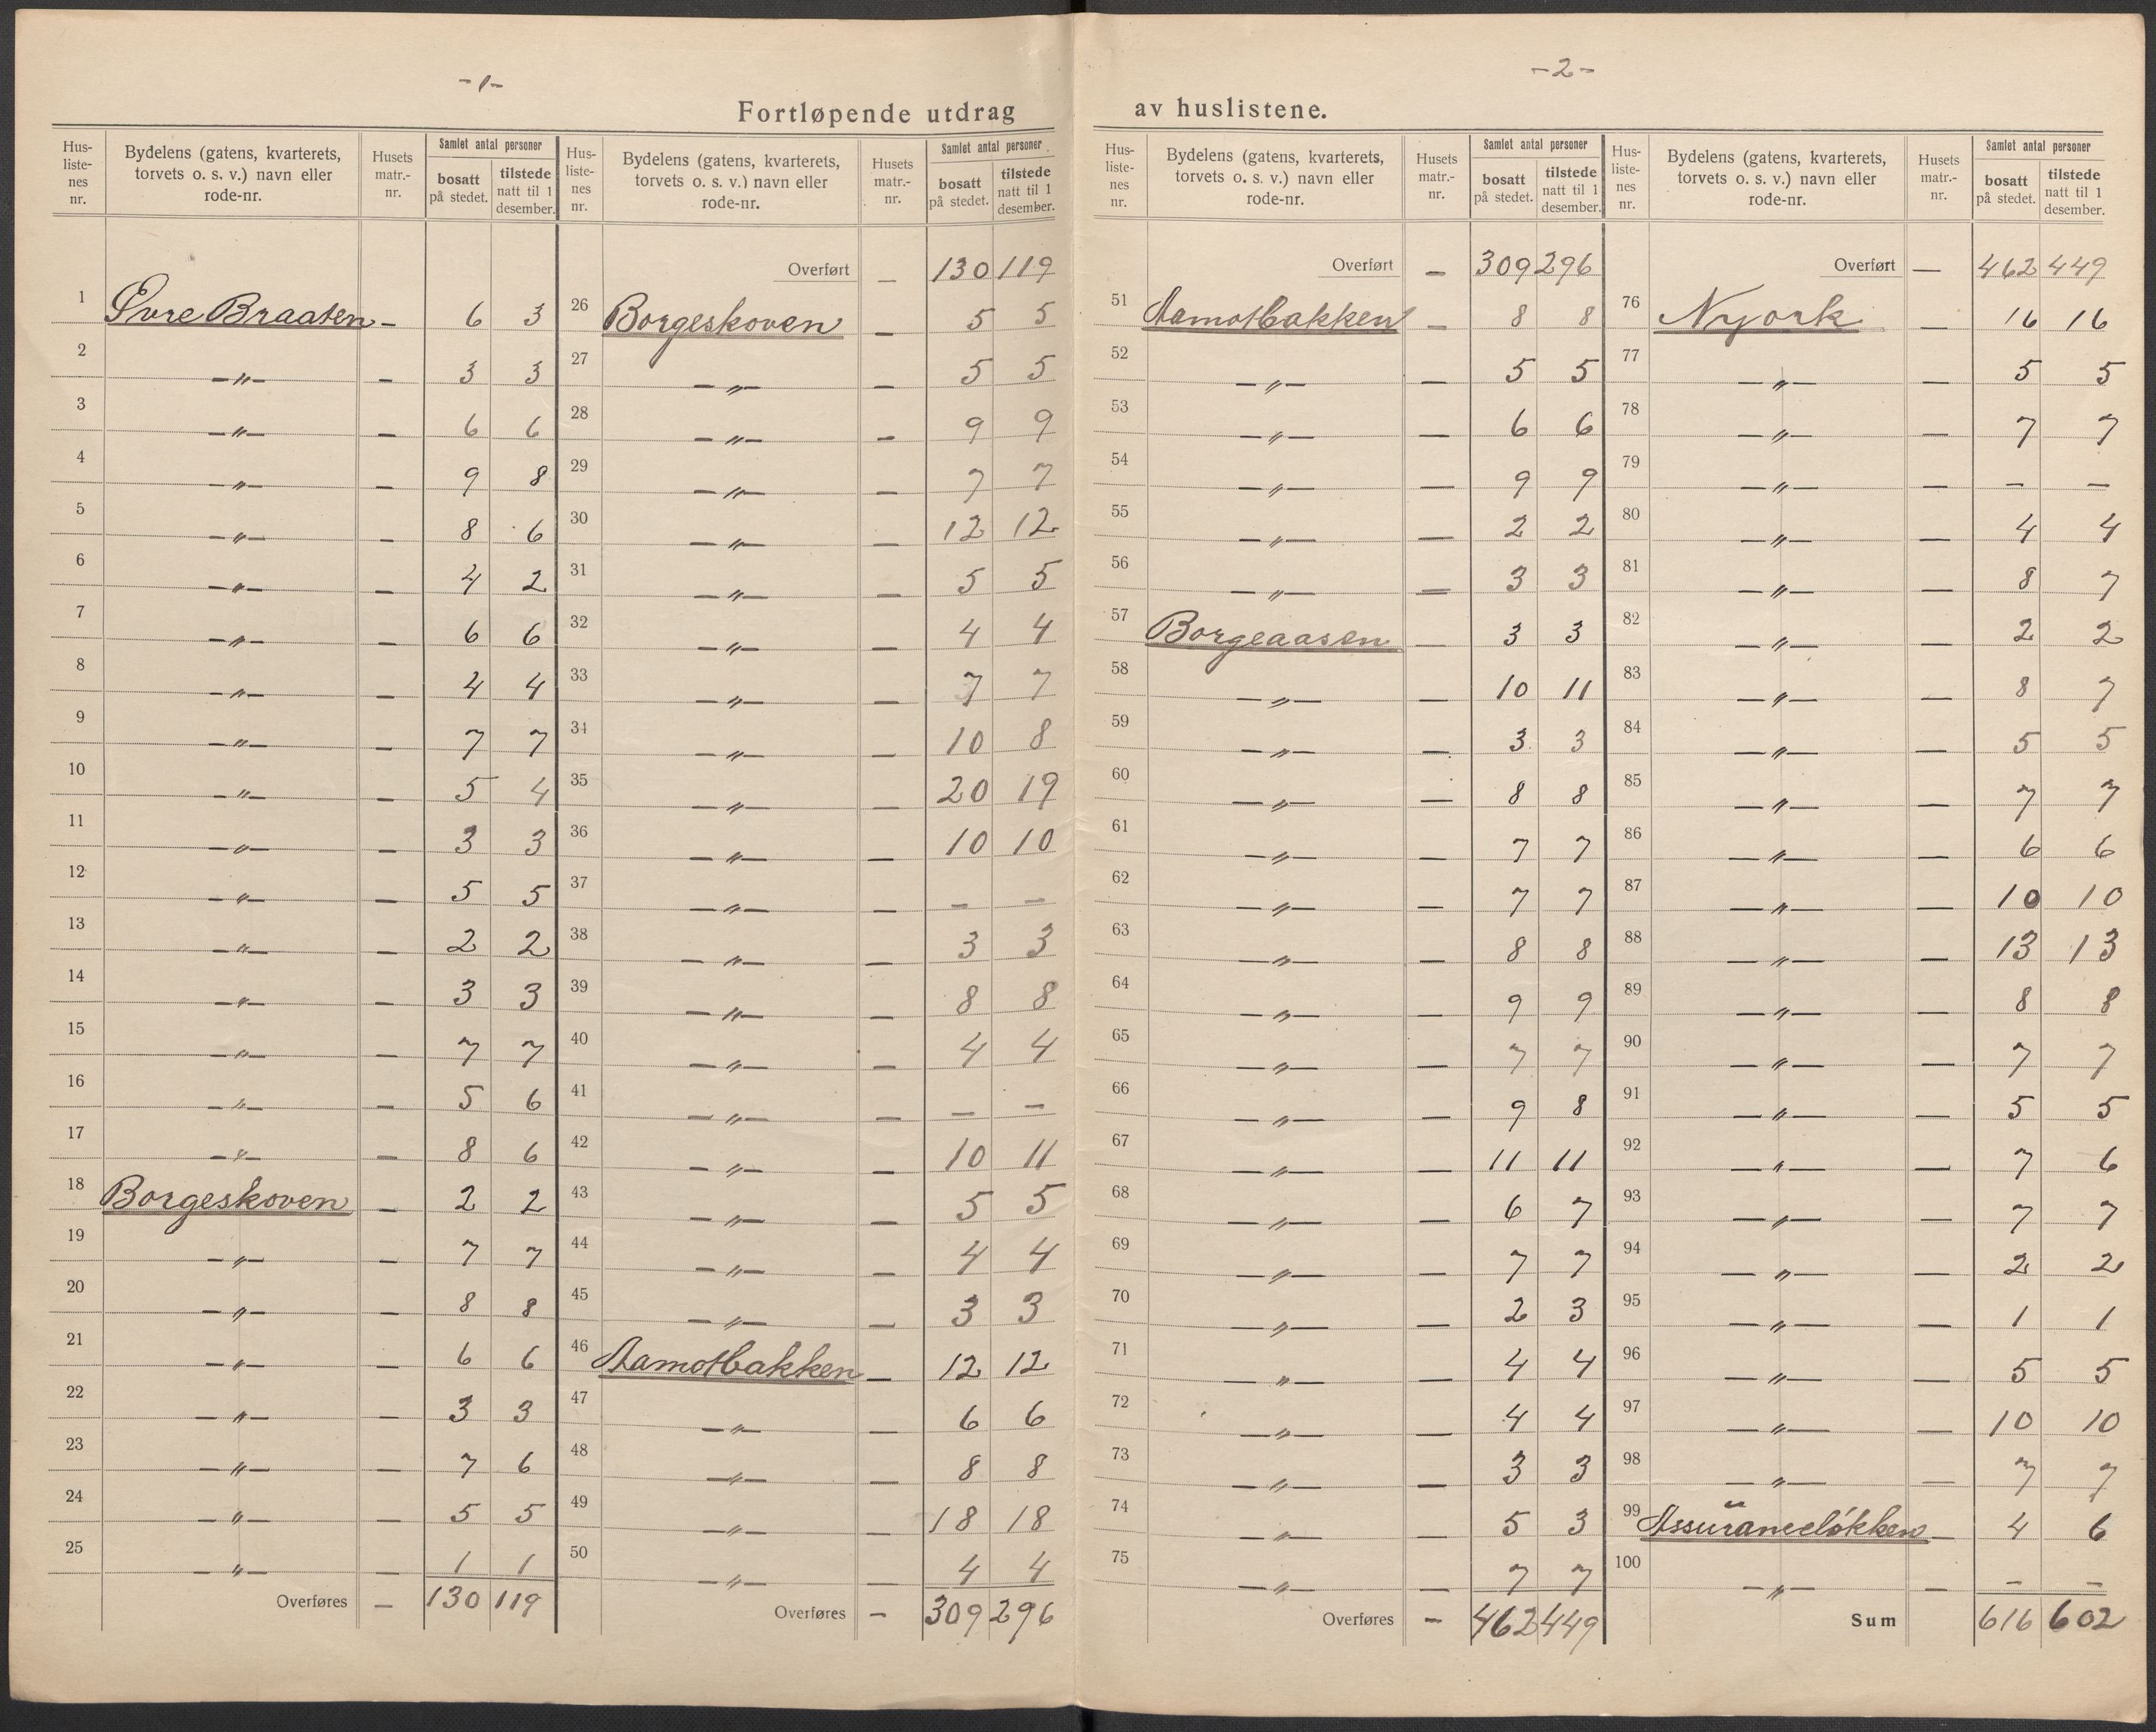 -1-
Fortløpende utdrag
Hus-
liste-
nes
nr.
Bydelens (gatens, kvarterets,
torvets o. s. v.) navn eller
rode-nr.
Husets
matr.-
nr.
Samlet antal personer
bosatt
på stedet.
tilstede
natt til 1
desember.
1 Øvre Braaten - 6 3
2 -"- - 3 3
3 -"- - 6 6
4 -"- - 9 8
5 -"- - 8 6
6 -"- - 4 2
7 -"- - 6 6
8 -"- - 4 4
9 -"- - 7 7
10 -"- - 5 4
11 -"- - 3 3
12 -"- - 5 5
13 -"- - 2 2
14 -"- - 3 3
15 -"- - 7 7
16 -"- - 5 6
17 -"- - 8 6
18 Borgeskoven - 2 2
19 -"- - 7 7
20 -"- - 8 8
21 -"- - 6 6
22 -"- - 3 3
23 -"- - 7 6
24 -"- - 5 5
25 -"- - 1 1
Overføres - 130 119
Hus-
liste-
nes
nr.
Bydelens (gatens, kvarterets,
torvets o. s. v.) navn eller
rode-nr.
Husets
matr.-
nr.
Samlet antal personer
bosatt
på stedet.
tilstede
natt til 1
desember.
Overført - 130 119
26 Borgeskoven - 5 5
27 -"- - 5 5
28 -"- - 9 9
29 -"- - 7 7
30 -"- - 12 12
31 -"- - 5 5
32 -"- - 4 4
33 -"- - 7 7
34 -"- - 10 8
35 -"- - 20 19
36 -"- - 10 10
37 -"- - - -
38 -"- - 3 3
39 -"- - 8 8
40 -"- - 4 4
41 -"- - - -
42 -"- - 10 11
43 -"- - 5 5
44 -"- - 4 4
45 -"- - 3 3
46 Aamotbakken - 12 12
47 -"- - 6 6
48 -"- - 8 8
49 -"- - 18 18
50 -"- - 4 4
Overføres - 309 296
-2-
av huslistene.
Hus-
liste-
nes
nr.
Bydelens (gatens, kvarterets,
torvets o. s. v.) navn eller
rode-nr.
Husets
matr.-
nr.
Samlet antal personer
bosatt
på stedet.
tilstede
natt til 1
desember.
Overført - 309 296
51 Aamotbakken - 8 8
52 -"- - 5 5
53 -"- - 6 6
54 -"- - 9 9
55 -"- - 2 2
56 -"- - 3 3
57 Borgeaasen - 3 3
58 -"- - 10 11
59 -"- - 3 3
60 -"- - 8 8
61 -"- - 7 7
62 -"- - 7 7
63 -"- - 8 8
64 -"- - 9 9
65 -"- - 7 7
66 -"- - 9 8
67 -"- - 11 11
68 -"- - 6 7
69 -"- - 7 7
70 -"- - 2 3
71 -"- - 4 4
72 -"- - 4 4
73 -"- - 3 3
74 -"- - 5 3
75 -"- - 7 7
Overføres - 462 449
Hus-
liste-
nes
nr.
Bydelens (gatens, kvarterets,
torvets o. s. v.) navn eller
rode-nr.
Husets
matr.-
nr.
Samlet antal personer
bosatt
på stedet.
tilstede
natt til 1
desember.
Overført - 462 449
76 Nyork - 16 16
77 -"- - 5 5
78 -"- - 7 7
79 -"- - - -
80 -"- - 4 4
81 -"- - 8 7
82 -"- - 2 2
83 -"- - 8 7
84 -"- - 5 5
85 -"- - 7 7
86 -"- - 6 6
87 -"- - 10 10
88 -"- - 13 13
89 -"- - 8 8
90 -"- - 7 7
91 -"- - 5 5
92 -"- - 7 6
93 -"- - 7 7
94 -"- - 2 2
95 -"- - 1 1
96 -"- - 5 5
97 -"- - 10 10
98 -"- - 7 7
99 Assüranceløkken - 4 6
100 -"- - - -
Sum 616 602